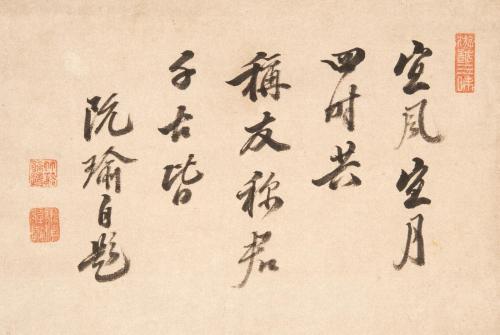 宜風宜月
四时共
稱友称君
千古皆
阮瑜自题